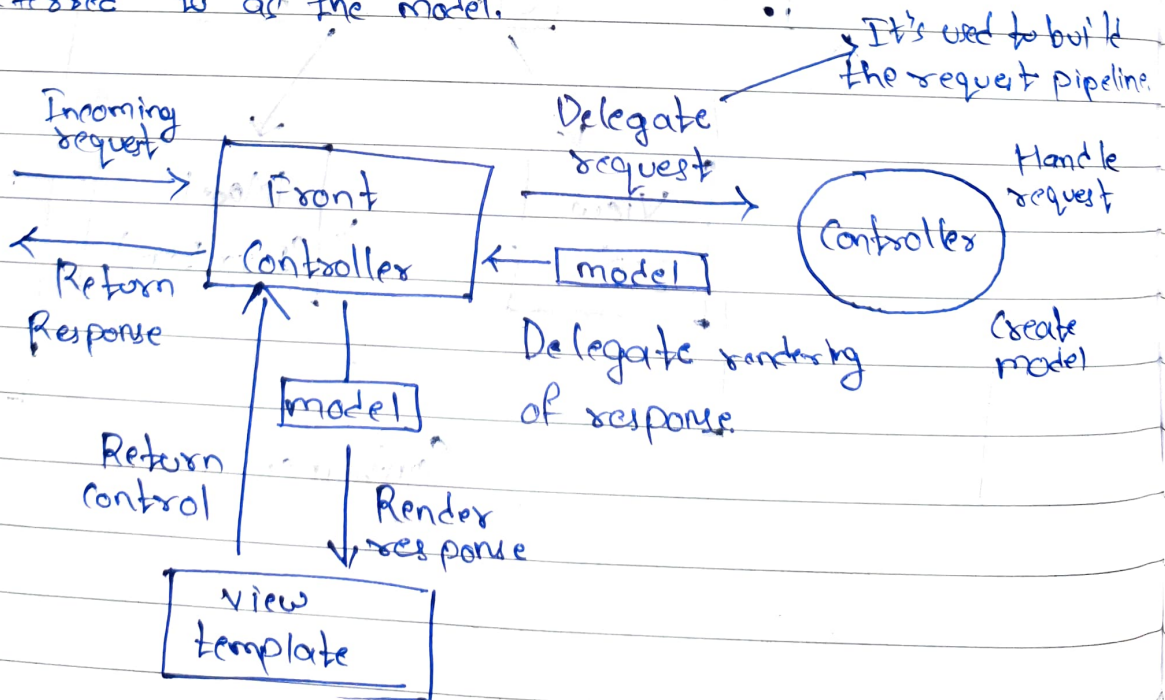 as the model.
It's used to build
the request pipeline.
Incoming
request
Delegate
request
Handle
request
Front
Controller
Controller
model
Return
Response
Delegate rendering
of response.
Create
model
model
Return
control
Render
response
view
template